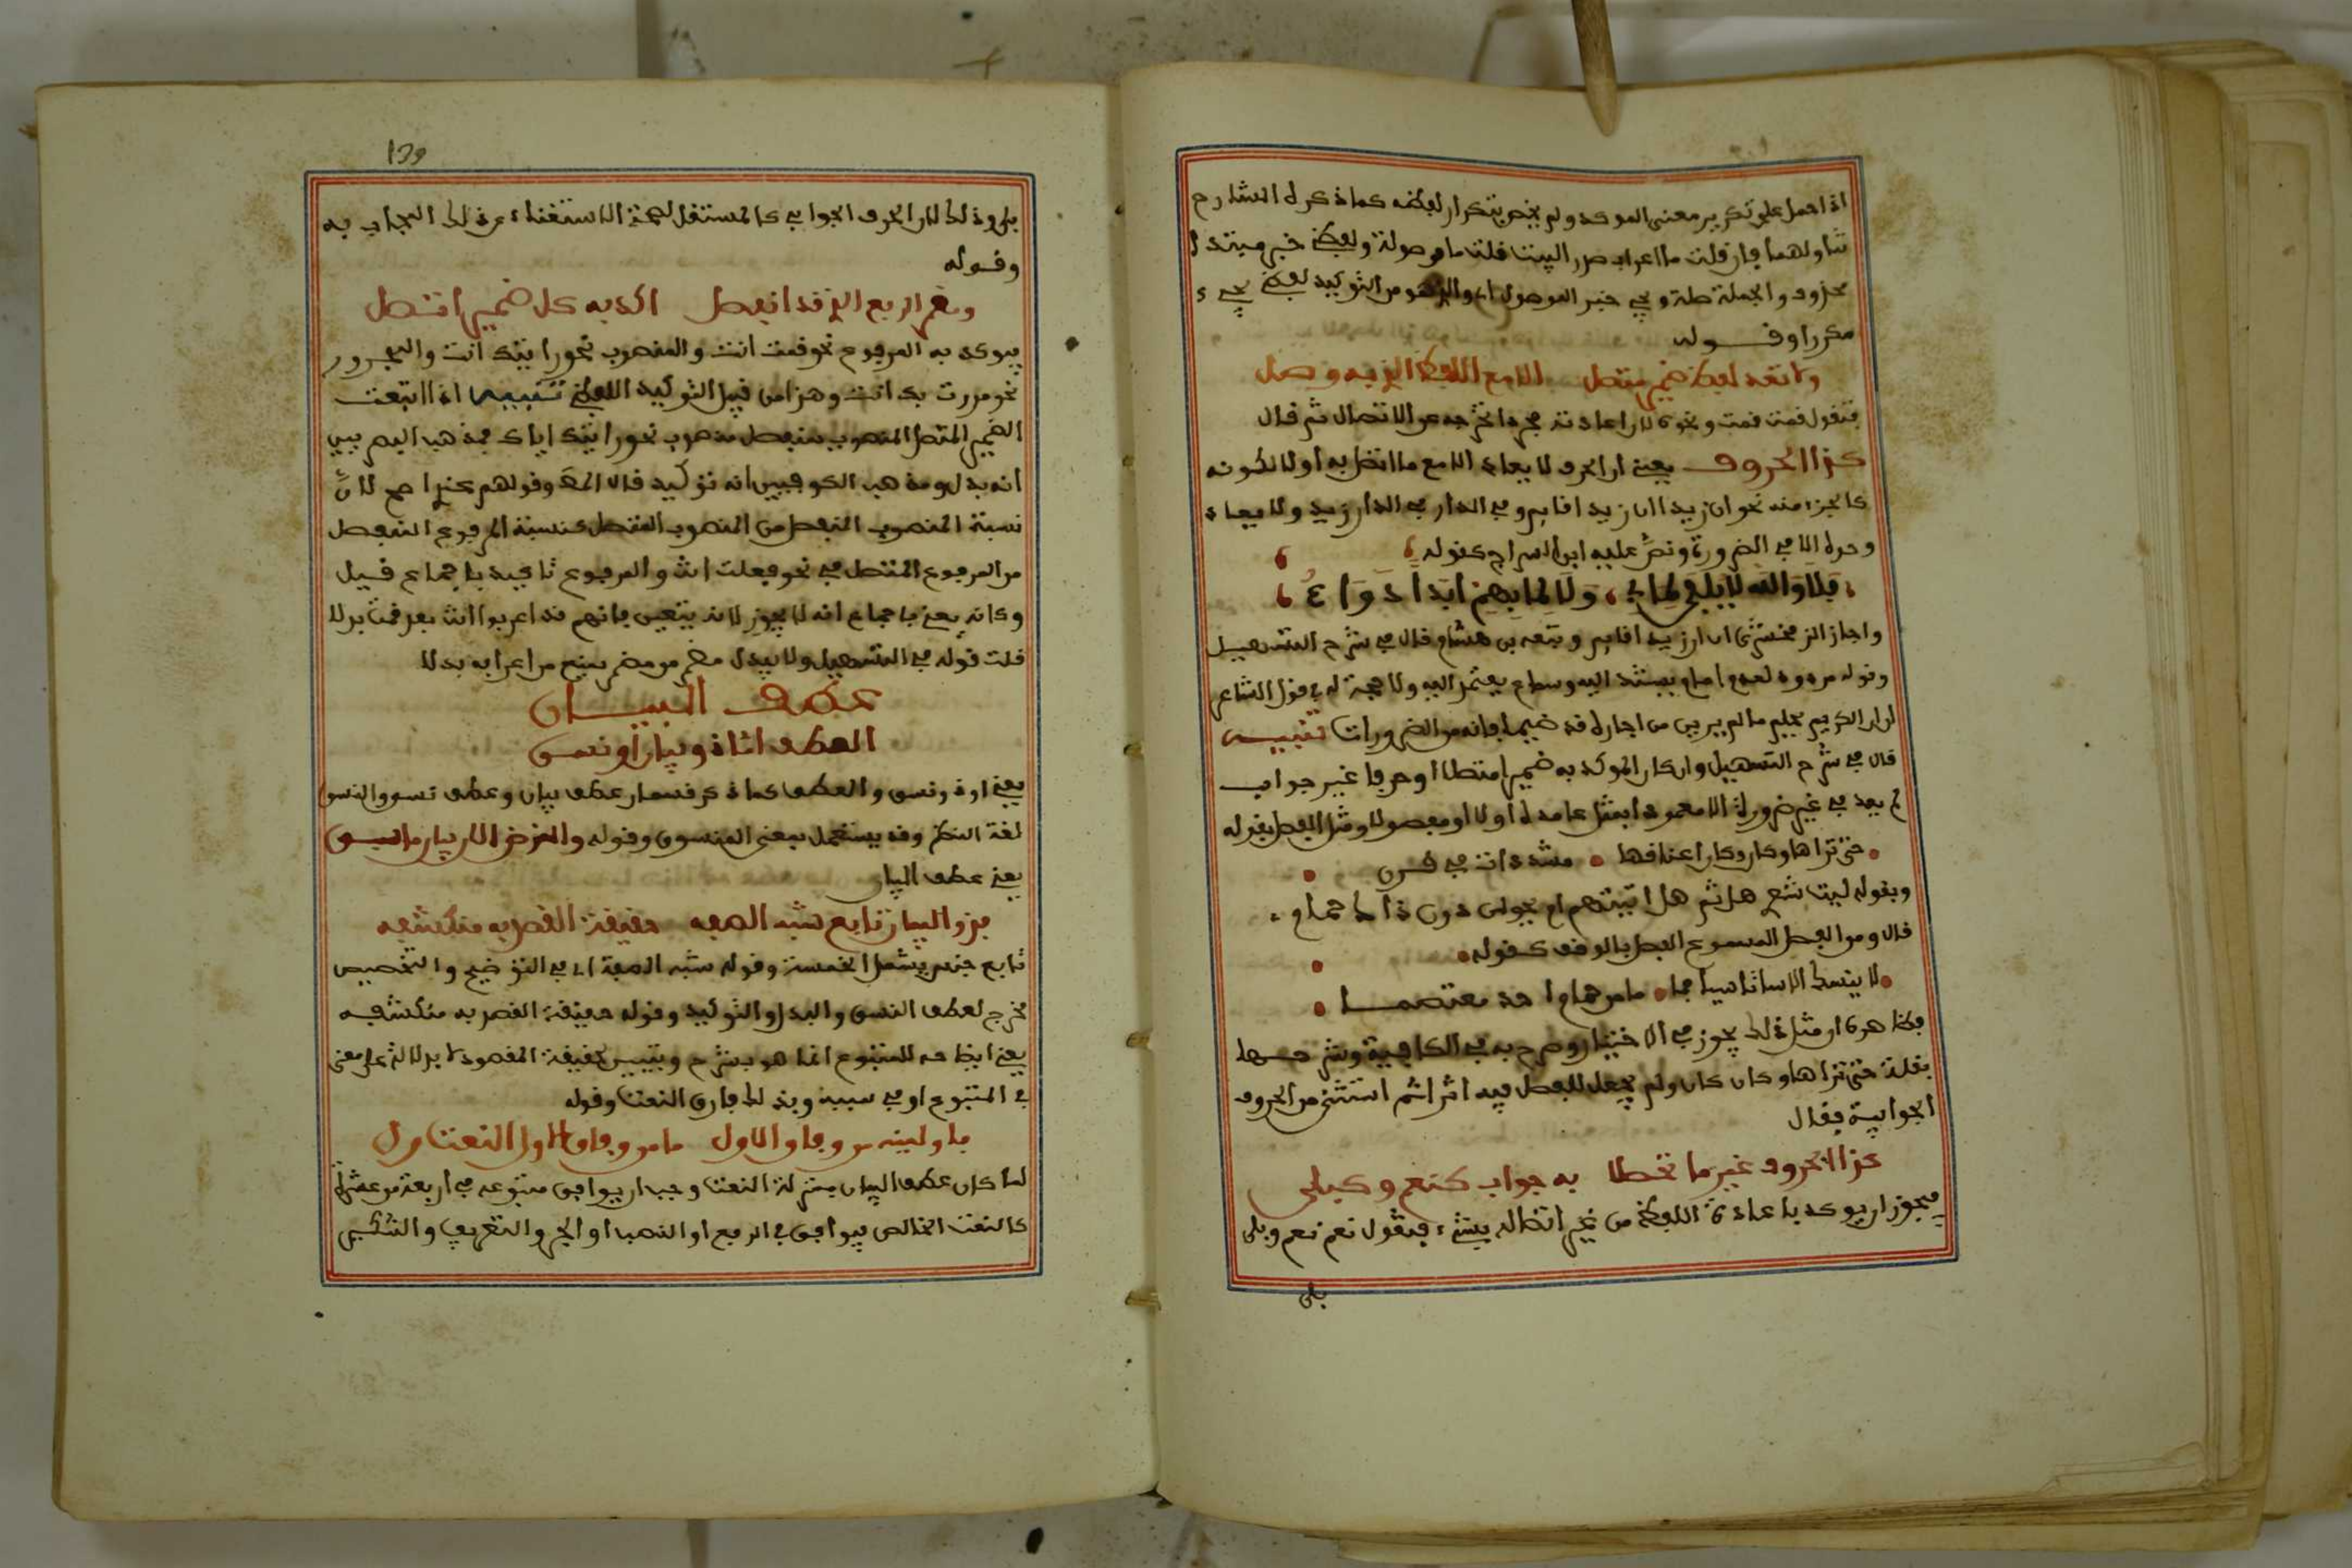 اذا حمل على تكرير معنى الموكد ولم يخص بتكرار لفظه كما ذكره الشارح
تناولهما فان قلت ما اعراب صدر البيت قلت ما موصولة ولفظي خبر مبتدا
محذوف والجملة صلة ويجي خبر الموصول اي والذي هو من التوكيد لفظي يجيء
مكررا وقوله
ولا تعد لفظ ضمير متصل الا مع اللفظ الذي به وصل
فتقول قمت قمت ونحوه لان اعادته مجردا تخرجه عن الاتصال ثم قال
كذا الحروف يعني ان الحرف لا يعاد الا مع ما اتصل به اولا لكونه
كالجزء منه نحو ان زيدا ان زيدا قايم وفي الدار في الدار زيد ولا يعاد
وحده الا في الضرورة ونص عليه ابن السراج كقوله
فَلَا وَاللَّه لَا يُلْفَى لِمَا بِي وَلَا لِمَا بِهِمْ أَبَدًا دَوَاءُ
واجاز الزمخشري ان ان زيدا قايم وتبعه بن هشام قال في شرح التسهيل
وقوله مردود لعدم امام يستند اليه وسماع يعتمد اليه ولا حجة له في قول الشاعر
ان ان الكريم يحلم ما لم يرين من اجاره قد ضيما فانه من الضرورات تنبيه
قال في شرح التسهيل وان كان الموكد به ضميرا متصلا او حرفا غير جواب
لم يعد في غير ضرورة الا معمودا بمثل عامده اولا او مفصولا ومثل الفصل بقوله
حتى تراها وكان وكان اعناقها مشددات في قرن
وبقوله ليت شعري هل ثم هل اتينهم ام يحولن دون ذاك حمام
قال ومن الفصل المسموع الفصل بالوقف كقوله
لا ينسك الاسا تاسيا فما ما من حمام احد معتصما
فظاهره ان مثل ذلك يجوز في الاختيار وصرح به في الكافية وشرحها
بقلة حتى تراها وكان كان ولم يجعل للفصل فيه اثرا ثم استثنى من الحروف
الجوابية فقال
كذا الحروف غير ما تحصلا به جواب كنعم وكبلى
فيجوز ان يوكد باعادة اللفظ من غير اتصاله بشيء فتقول نعم نعم وبلى
بلى
139
بلى وذلك لان الحرف الجوابي كالمستقل لصحة الاستغناء عن ذلك المجاب به
وقوله
ومضمر الرفع الذي قد انفصل اكد به كل ضمير اتصل
فيوكد به المرفوع نحو قمت انت والمنصوب نحو رايتك انت والمجرور
نحو مررت بك انت وهذا من قبيل التوكيد اللفظي تنبيه اذا اتبعت
الضمير المتصل المنصوب بمنفصل منصوب نحو رايتك اياك فمذهب البصريين
انه بدل ومذهب الكوفيين انه توكيد قال المص وقولهم عندي اصح لان
نسبة المنصوب المنفصل من المنصوب المتصل كنسبة المرفوع المنفصل
من المرفوع المتصل في نحو فعلت انت والمرفوع تاكيد باجماع قيل
وكانه يعني باجماع انه لا يجوز لانه يتعين فانهم قد اعربوا انت بعد قمت بدلا
قلت قوله في التسهيل ولا يبدل مضمر من مضمر يمنع من اعرابه بدلا
عطف البيان
العطف اما ذو بيان او نسق
يعني او ذو نسق والعطف كما ذكر قسمان عطف بيان وعطف نسق والنسق
لغة النظم وقد يستعمل بمعنى المنسوق وقوله والغرض الان بيان ما سبق
يعني عطف البيان
فذو البيان تابع شبه الصفه حقيقة القصد به منكشفه
تابع جنس يشمل الخمسة وقوله شبه الصفة اي في التوضيح والتخصيص
مخرج لعطف النسق والبدل والتوكيد وقوله حقيقة القصد به منكشفه
يعني ايضاحه للمتبوع انما هو بشرح وتبيين لحقيقة المقصود لا بدلالة على معنى
في المتبوع او في سببه وبذلك فارق النعت وقوله
فاولينه من وفاق الاول ما من وفاق الاول النعت ولي
لما كان عطف البيان بمنزلة النعت وجب ان يوافق متبوعه في اربعة من عشرة
كالنعت الخالص فيوافق في الرفع او النصب او الجر والتعريف والتنكير